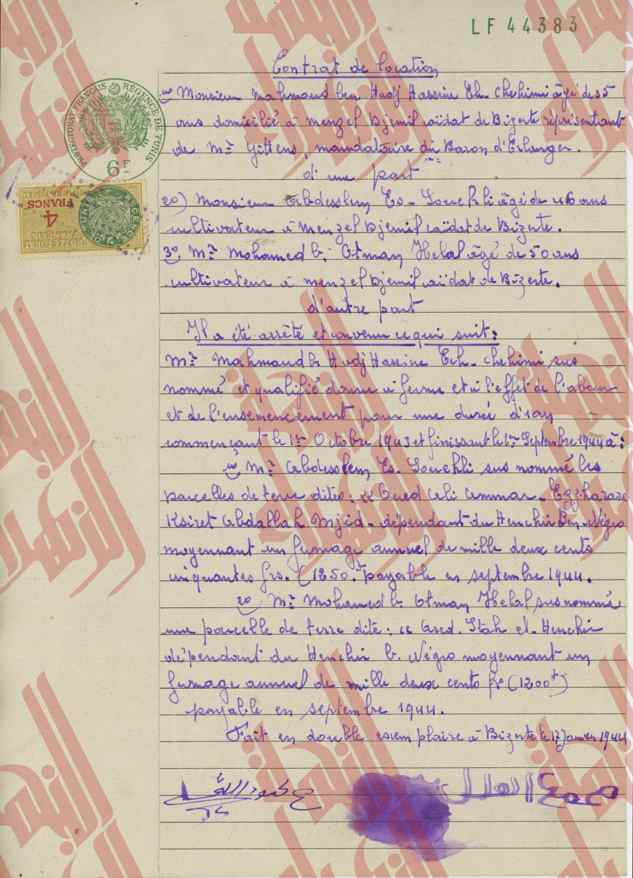 LF 44383
PROTECTORAT FRANÇAIS RÉGENCE DE TUNIS
6F
4
FRANCS
Contrat de location
1º Monsieur Mahmoud ben Hadj Hassine Ech. Chehimi âgé de 55
ans domicilié à Menzel Djemil caïdat de Bizerte représentant
de Mr Gittens, mandataire du Baron d'Erlanger.
d'une part
2º) Monsieur Abdesslem Es-Souehli âgé de 46 ans
cultivateur à Menzel Djemil caïdat de Bizerte.
3º Mr Mohamed b. Otman Helal âgé de 50 ans
cultivateur à Menzel Djemil caïdat de Bizerte.
d'autre part
Il a été arrêté et convenu ce qui suit:
Mr Mahmoud b. Hadj Hassine Ech-Chehimi sus
nommé et qualifié donne à ferme et à l'effet de labour
et de l'ensemencement pour une durée d'1 an
commençant le 1er Octobre 1943 et finissant le 1er Septembre 1944 à:
1º Mr Abdesslem Es. Souehli sus nommé les
parcelles de terre dites: " Oued Ali Ammar - Ezzharase
Ksiret Abdallah Mjid - dépendant du Henchir Ben Négro
moyennant un fermage annuel de mille deux cents
cinquantes frs. (1250. payable en septembre 1944.
2º Mr Mohamed b. Otman Helal susnommé
une parcelle de terre dite: " Ared. Stah el Henchir
dépendant du Henchir b. Négro moyennant un
fermage annuel de mille deux cents frs (1200f)
payable en septembre 1944.
Fait en double exemplaire à Bizerte le 17 Janvier 1944